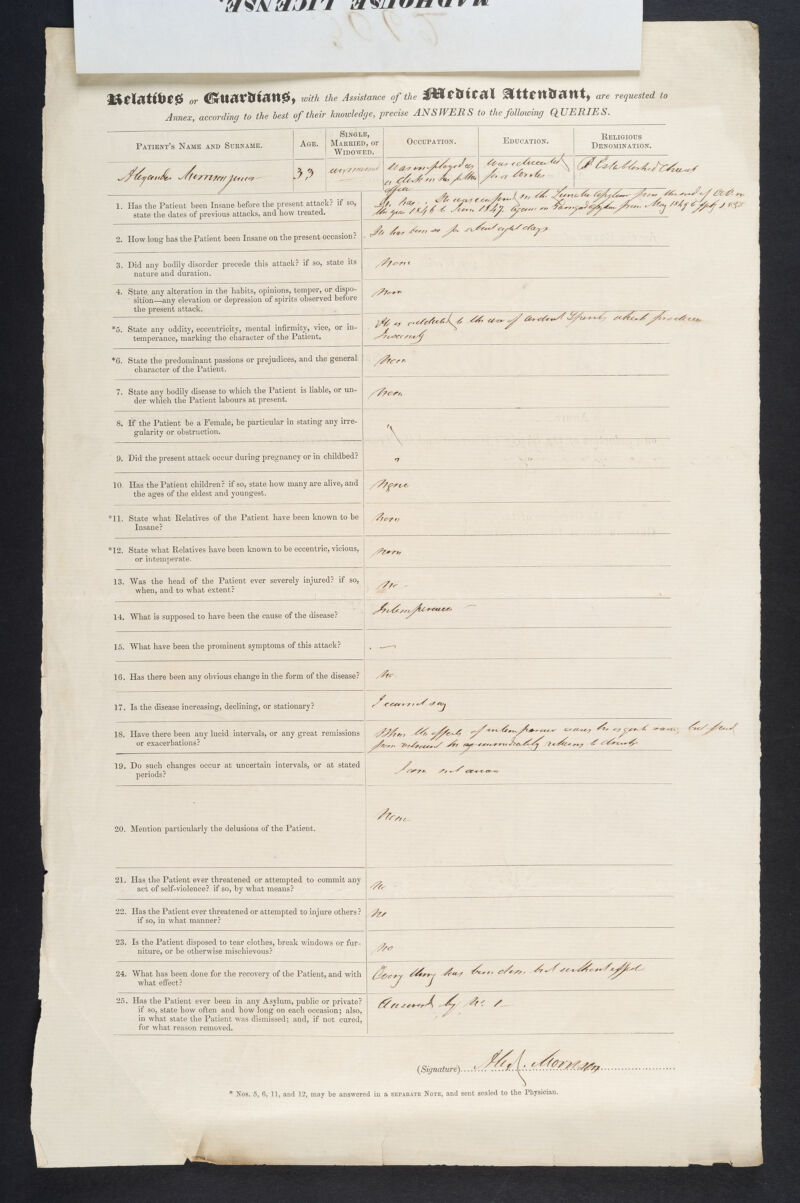 MADHOUSE LICENSE.
Relatives or Guardians, with the Assistance of the Medical Attendant, are requested to
Annex, according to the best of their knowledge, precise ANSWERS to the following QUERIES.
Patient's Name and Surname.
Age.
Single, Married, or Widowed.
Occupation.
Education.
Religious Denomination.
Alexander Morrison Junior
33
unmarried
was employed as
a clerk in his father
office
was educated
for a Writer
Established Church
1. Has the Patient been Insane before the present attack? if so,
state the dates of previous attacks, and how treated.
He has. He was confined in the Lunatic Asylum from the end of Octr in
the year 1846 to June 1847. again in Asylum from May 1849 to
2. How long has the Patient been Insane on the present occasion?
He has been so for about eight days
3. Did any bodily disorder precede this attack? if so, state its
nature and duration.
None
4. State any alteration in the habits, opinions, temper, or dispo-
sition—any elevation or depression of spirits observed before
the present attack.
None
*5. State any oddity, eccentricity, mental infirmity, vice, or in-
temperance, marking the character of the Patient.
He is addicted to the use of ardent Spirits which produces
Insanity
*6. State the predominant passions or prejudices, and the general
character of the Patient.
None
7. State any bodily disease to which the Patient is liable, or un-
der which the Patient labours at present.
None
8. If the Patient be a Female, be particular in stating any irre-
gularity or obstruction.
"
9. Did the present attack occur during pregnancy or in childbed?
"
10. Has the Patient children? if so, state how many are alive, and
the ages of the eldest and youngest.
None
*11. State what Relatives of the Patient have been known to be
Insane?
None
*12. State what Relatives have been known to be eccentric, vicious,
or intemperate.
None
13. Was the head of the Patient ever severely injured? if so,
when, and to what extent?
No -
14. What is supposed to have been the cause of the disease?
Intemperance —
15. What have been the prominent symptoms of this attack?
. —
16. Has there been any obvious change in the form of the disease?
No
17. Is the disease increasing, declining, or stationary?
I cannot say
18. Have there been any lucid intervals, or any great remissions
or exacerbations?
When the effects of intemperance ceases he is quite sane, but
from he immediately returns to drink
19. Do such changes occur at uncertain intervals, or at stated
periods?
I am not aware
20. Mention particularly the delusions of the Patient.
None
21. Has the Patient ever threatened or attempted to commit any
act of self-violence? if so, by what means?
No -
22. Has the Patient ever threatened or attempted to injure others?
if so, in what manner?
No
23. Is the Patient disposed to tear clothes, break windows or fur-
niture, or be otherwise mischievous?
No
24. What has been done for the recovery of the Patient, and with
what effect?
Every thing has been done but without effect
25. Has the Patient ever been in any Asylum, public or private?
if so, state how often and how long on each occasion; also,
in what state the Patient was dismissed; and, if not cured,
for what reason removed.
Answered by No. 1
(Signature) Alexr. Morrison
* Nos. 5, 6, 11, and 12, may be answered in a separate Note, and sent sealed to the Physician.